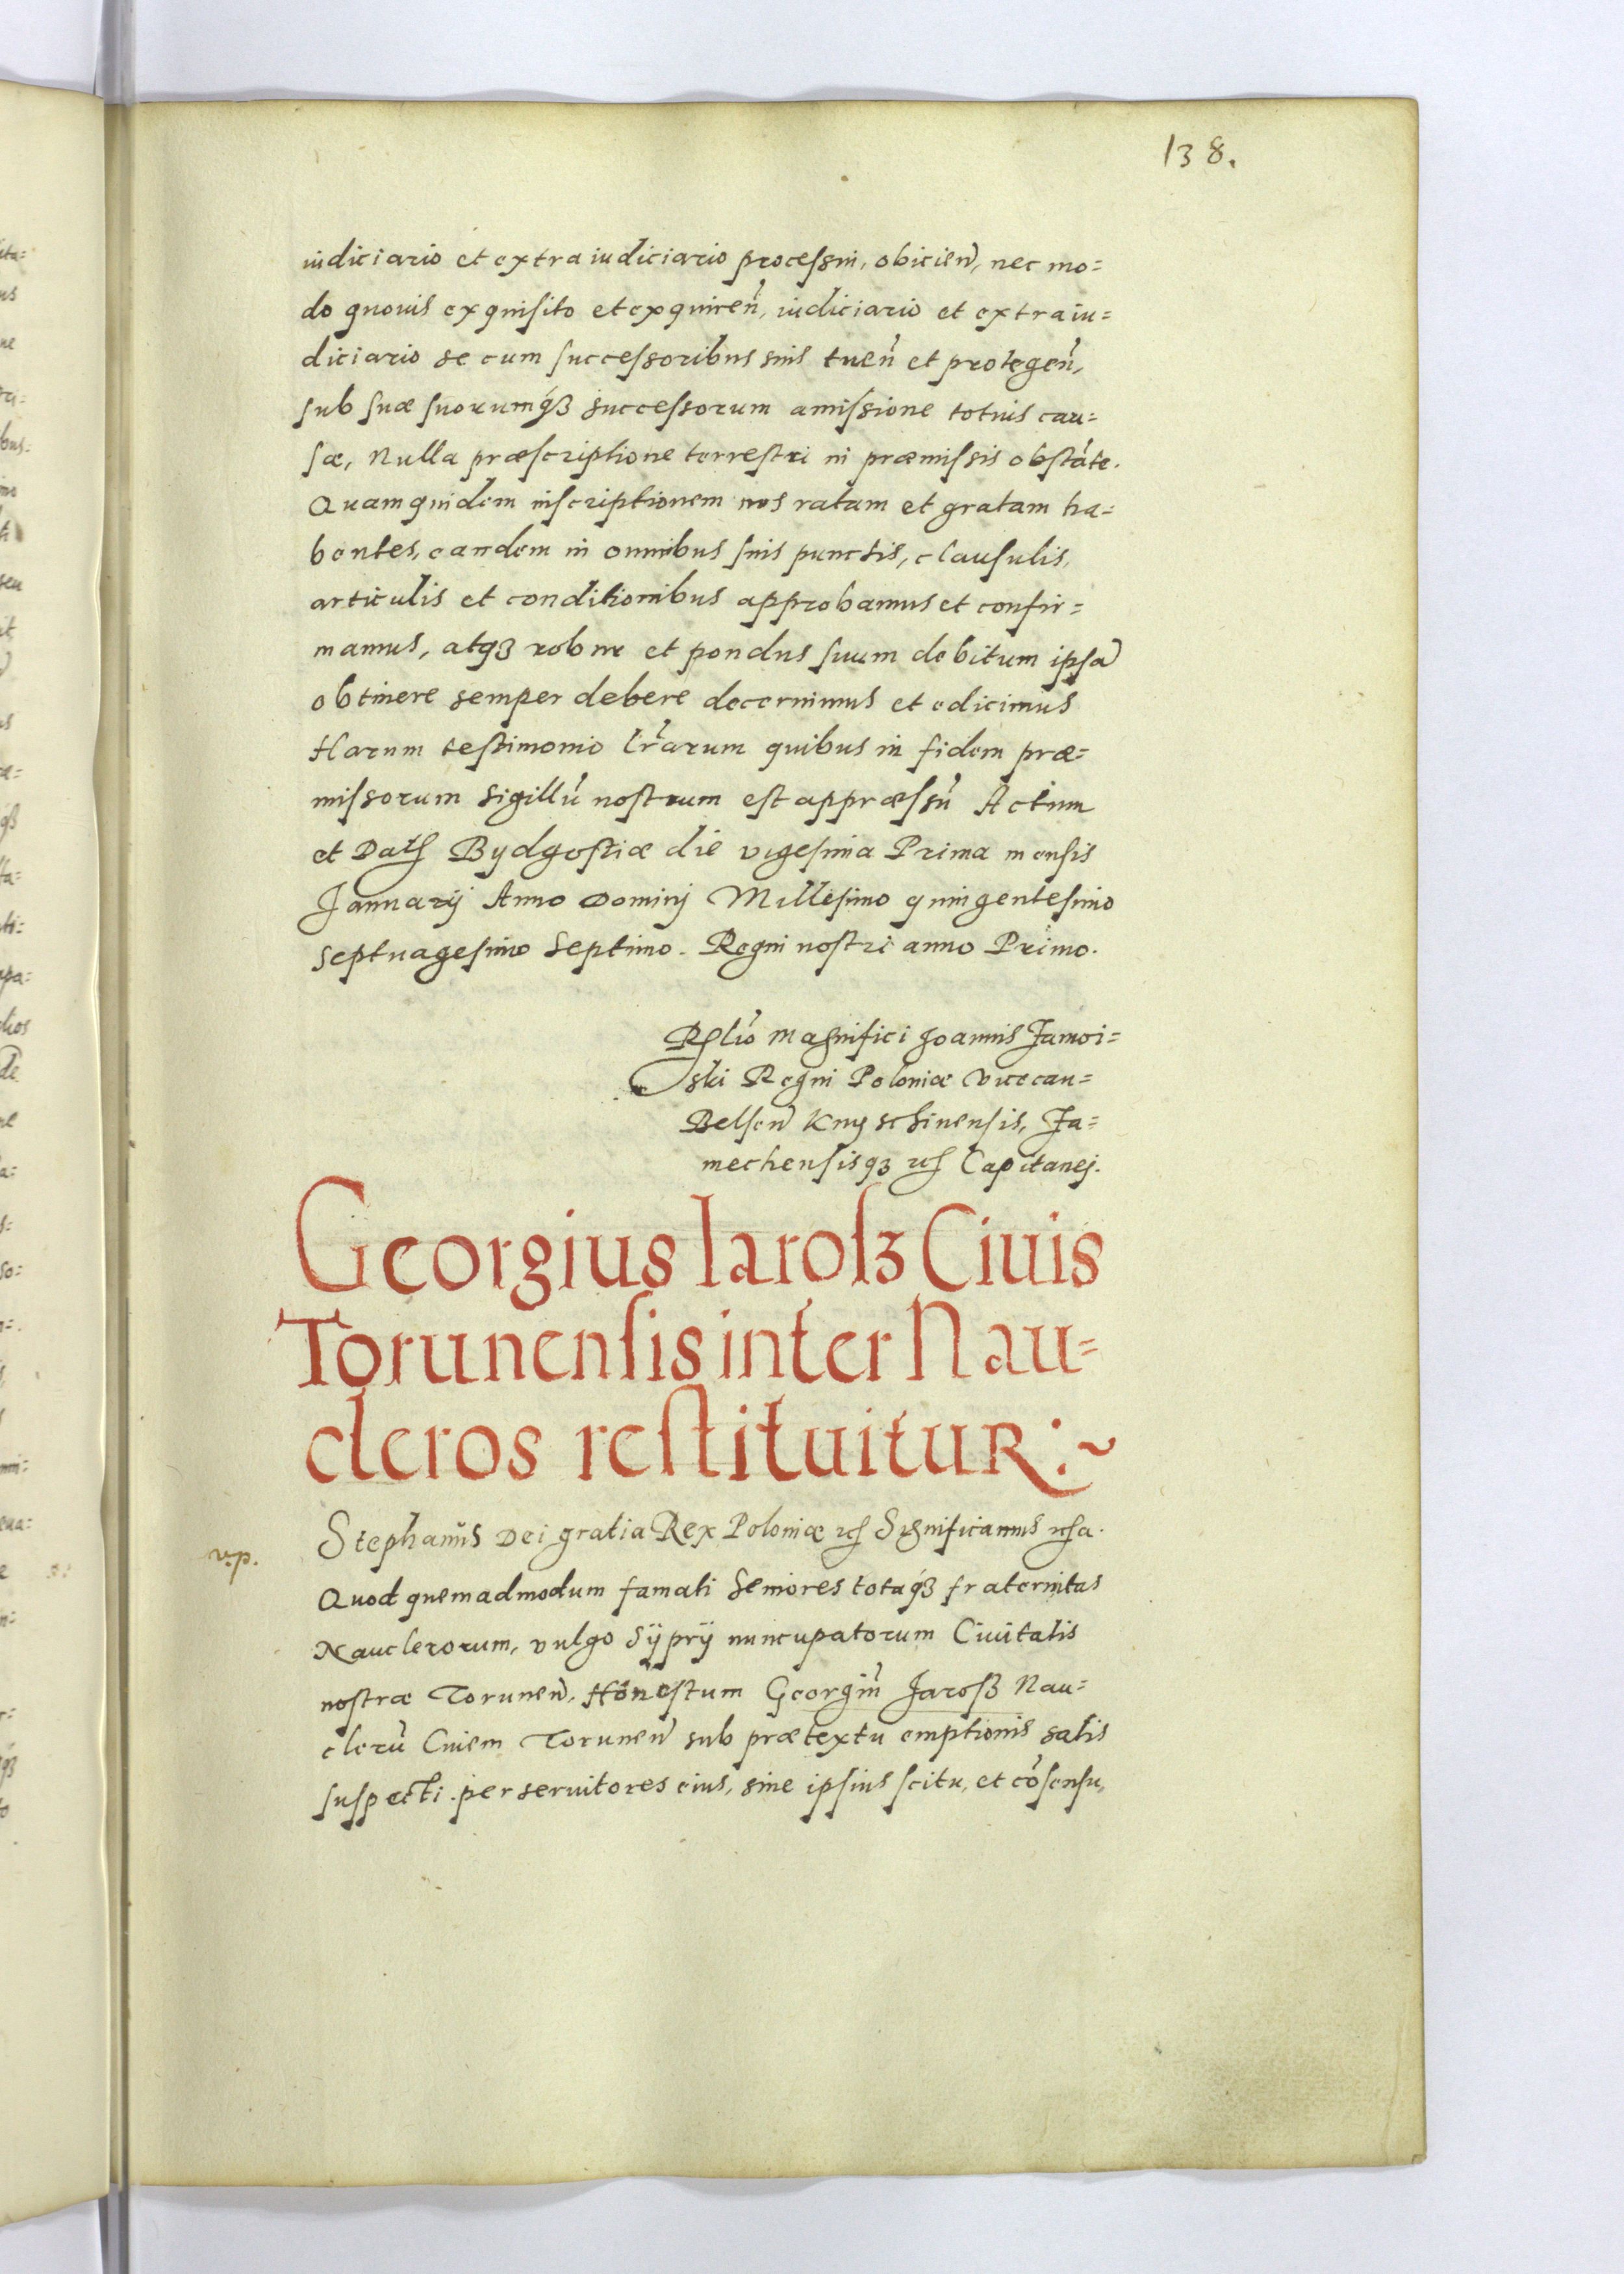 138.
iudiciario et extra iudiciario processui, obicien̄, nec mo=
do quouis exquisito et exquiren̄, iudiciario et extraiu=
diciario se cum successoribus suis tuen̄ et protegen̄,
sub suæ suorumq́ꝫ successorum amissione totius cau=
sæ, Nulla præscriptione terrestri in præmissis obstāte.
Quam quidem inscriptionem nos ratam et gratam ha=
bentes, eandem in omnibus suis punctis, clausulis,
articulis et conditionibus approbamus et confir=
mamus, atqꝫ robur et pondus suum debitum ipsā
obtinere semper debere decernimus et edicimus
Harum testimonio lr̄arum quibus in fidem præ=
missorum sigillū nostrum est appræssū Actum
et Dat Bydgostiæ die vigesima Prima mensis
Januarij Anno Dominj Millesimo quingentesimo
septuagesimo Septimo. Regni nostri anno Primo.
Rltio Magnifici Joannis Zamoi=
ski Regni Poloniæ Vicecan=
Belsen̄ Knyschinensis, Za=
mechensisqꝫ etc Capitanej.
Georgius Iarosꝫ Ciuis
Torunensis inter Nau=
cleros restituitur:~
v.p.
Stephanus Dei gratia Rex Poloniæ etc Significamus etca.
Quod quemadmodum famati Seniores totaq́ꝫ fraternitas
Nauclerorum, vulgo Sÿprÿ nuncupatorum Ciuitatis
nostræ Torunen̄. Honestum Georgiū Jarosß Nau=
clerū Ciuem Torunen̄ sub prætextu emptionis salis
suspecti. per seruitores eius, sine ipsius scitu, et cōsensu,